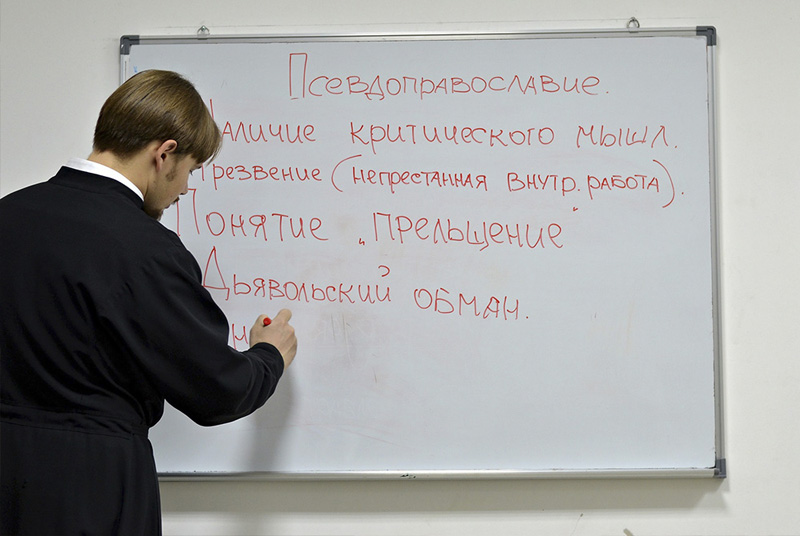 Псевдоправославие.
Наличие критического мышл.
Трезвение (непрестанная внутр. работа).
Понятие „Прельщение"
Дьявольский обман.